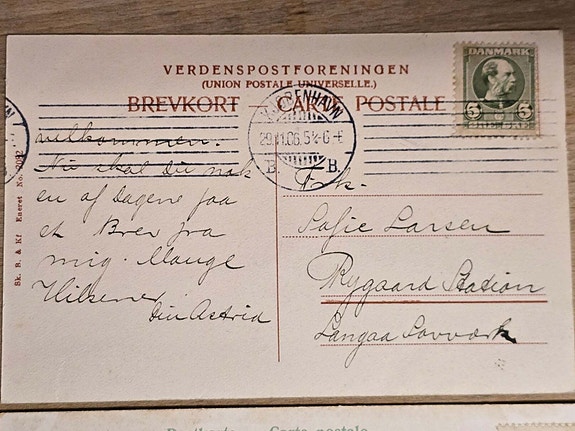 VERDENSPOSTFORENINGEN
(UNION POSTALE UNIVERSELLE.)
BREVKORT — CARTE POSTALE
DANMARK
5 5
KJØBENHAVN
29.11.06. 5¼-6 E
B. B.
velkommen.
Nu skal du nok
en af Dagene faa
et Brev fra
mig. Mange
Hilsener
din Astrid
Sk. B. & Kf Eneret No.
Frk.
Sofie Larsen
Rygaard Station
Langaa
Postkarte — Carte postale